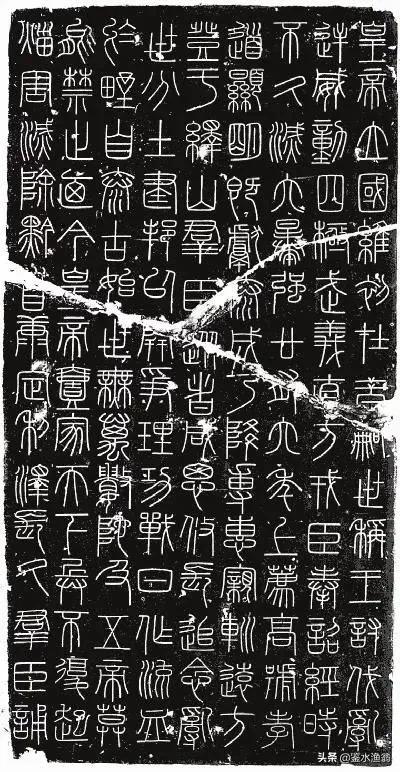 皇帝立國維初在昔嗣世稱王討伐亂
逆威動四極武義直方戎臣奉詔經時
不久滅六暴強廿有六年上薦高號孝
道顯明既獻泰成乃降專惠親巡遠方
登于繹山群臣從者咸思攸長追念亂
世分土建邦以開爭理功戰日作流血
於野自泰古始世無萬數陀及五帝莫
能禁止廼今皇帝壹家天下兵不復起
災害滅除黔首康定利澤長久群臣誦
头条 @鉴水渔翁